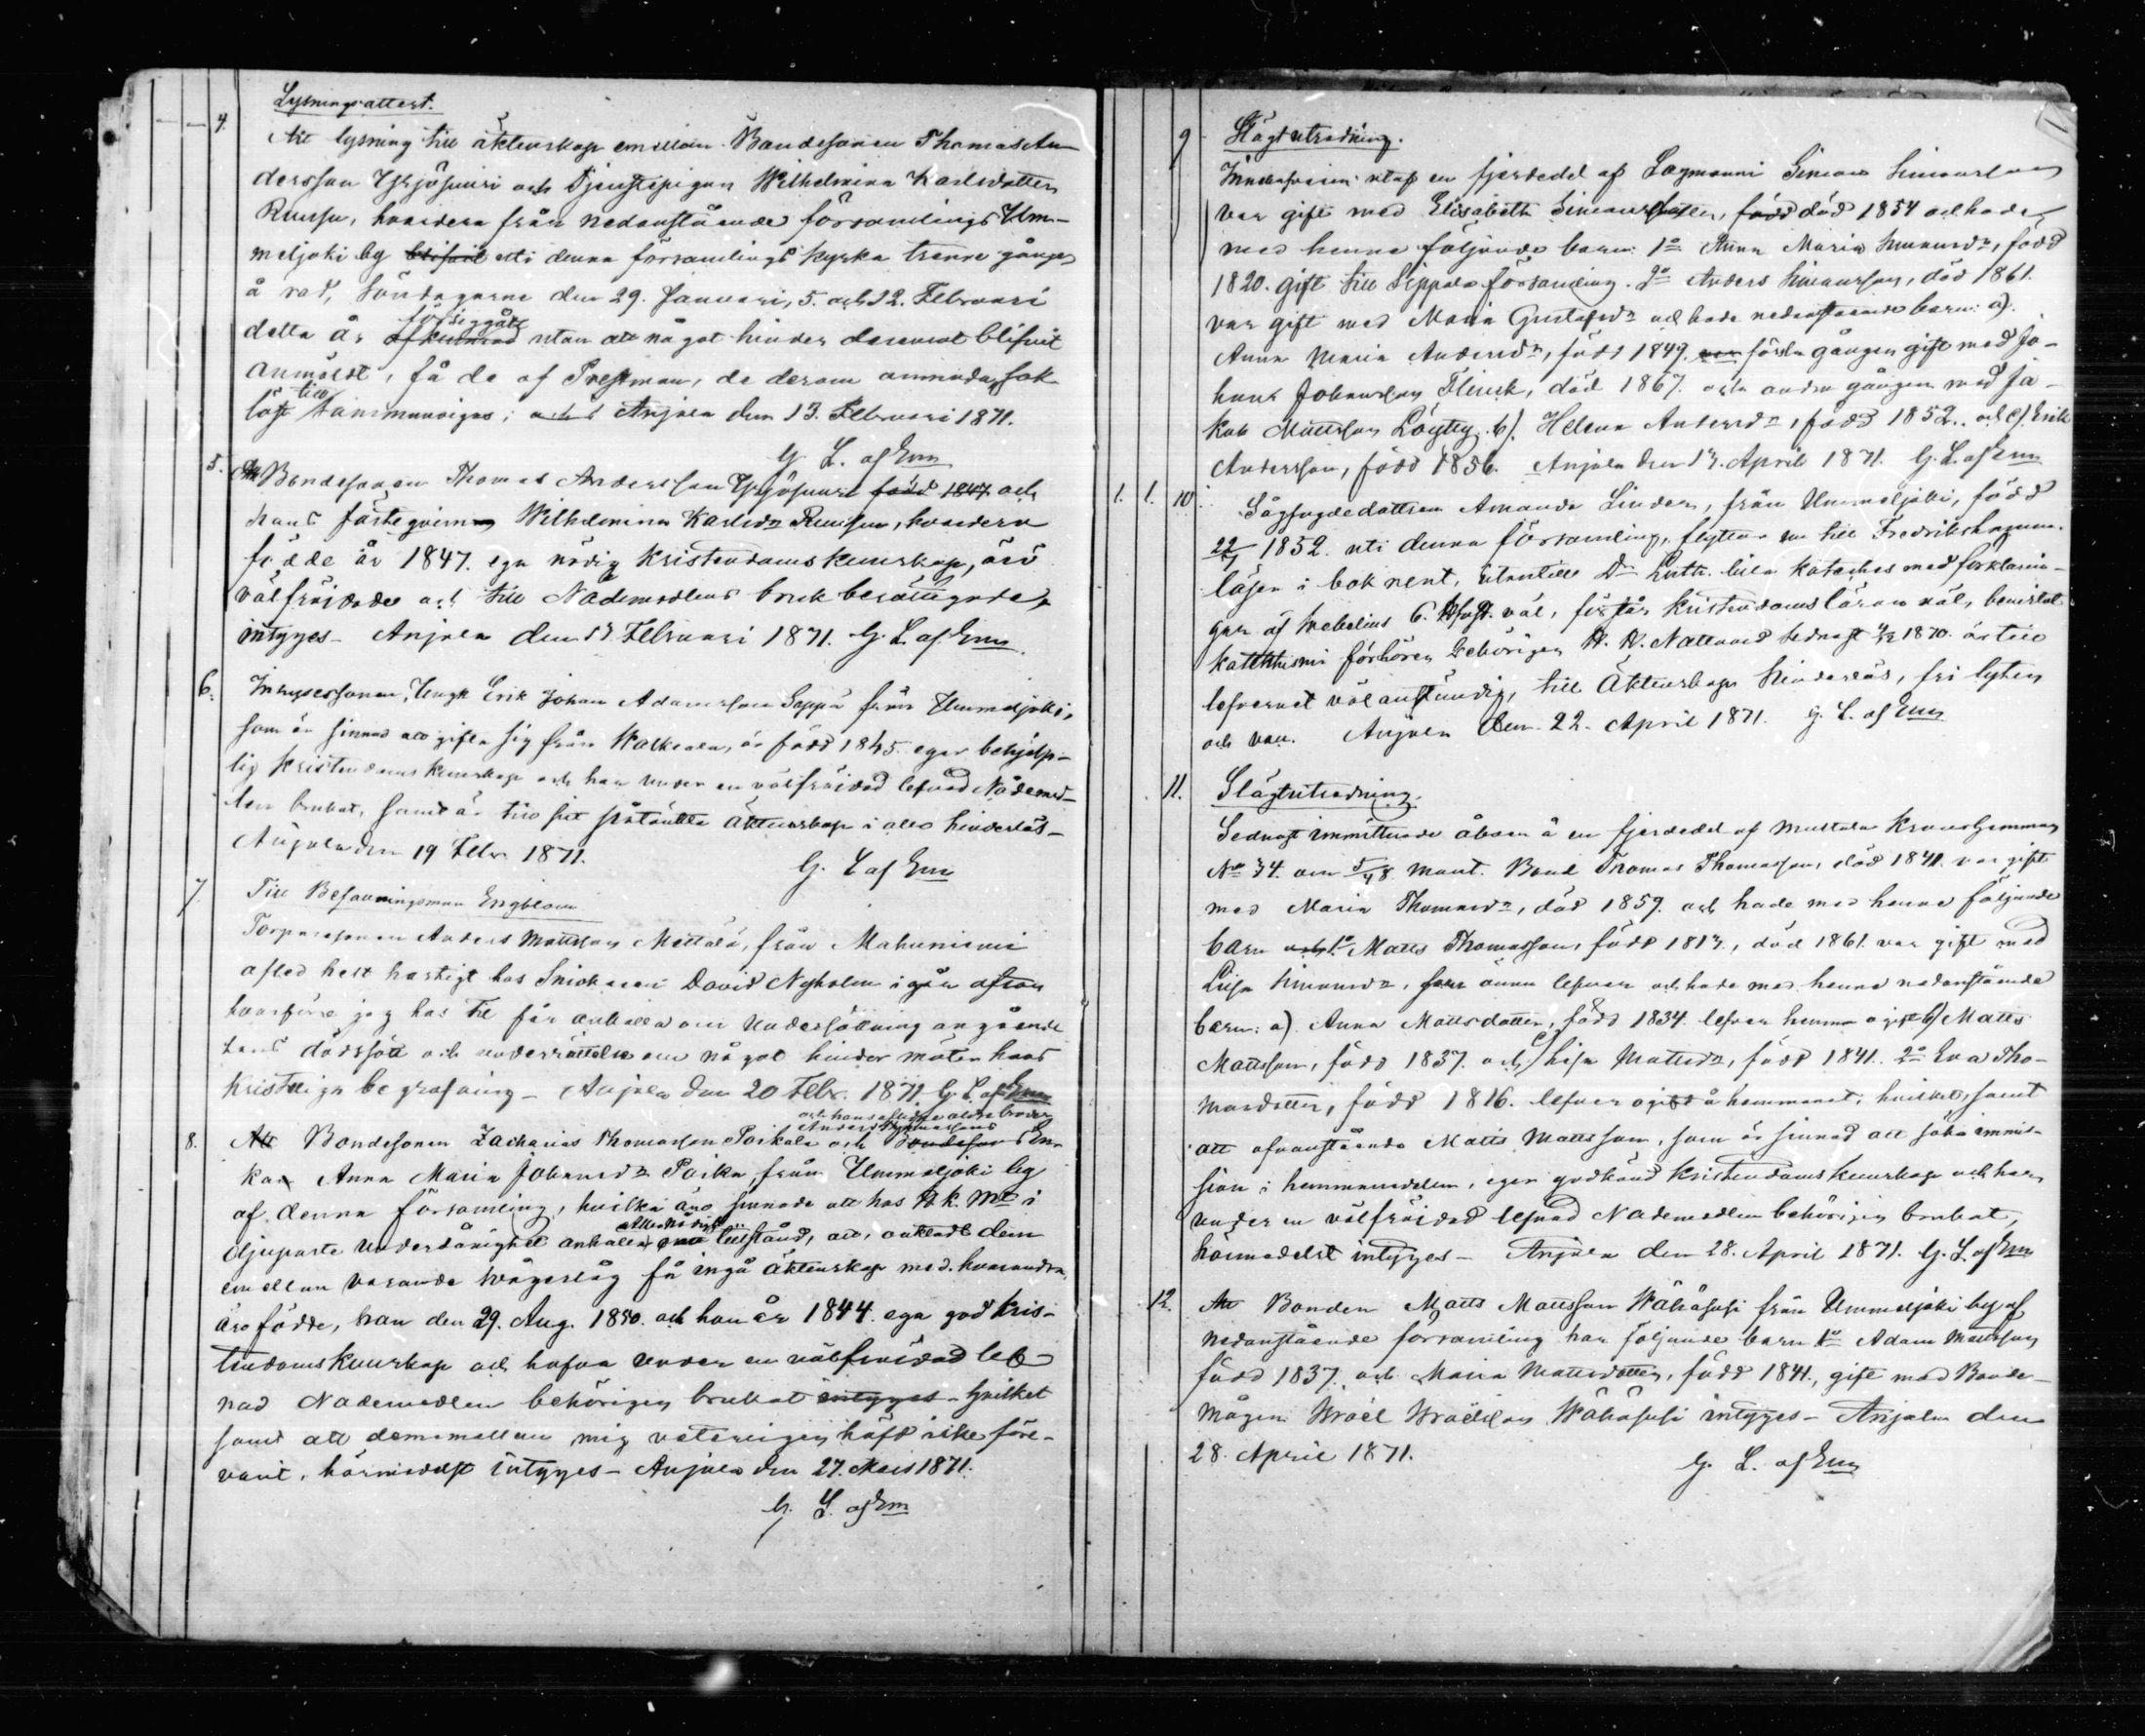 4. Lysningsattest.
Att lysning till äktenskap emellan Bondesonen Thomas An-
dersson Yrjösuuri och Tjenstepigan Wilhelmina Karlsdotter
Ruusu, hvardera från nedanstående församlings Um-
meljoki by blifvit uti denna församlings kyrka trenne gånger
å rad, Söndagarne den 29. Januari, 5. och 12. Februari
försiggått
detta år afkunnad utan att något hinder deremot blifvit
anmäldt, få de af Prestman, de derom anmoda,
till
sammanvigas; Anjala den 13. Februari 1871.
G. L. af Enm
5. Att Bondesonen Thomas Andersson Yrjösuuri född 1847 och
hans fästeqvinna Wilhelmina Karlsdr Ruusu, hvardera
födde år 1847. ega nödig kristendomskunskap, äro
välfräjdade och till Nådemedlens bruk berättigade,
intyges - Anjala den 13. Februari 1871. G. L. af Enm
6. Inhysessonen, Ungk. Erik Johan Adamsson Seppä från Ummeljoki,
som är sinnad att gifta sig från Walkeala, är född 1845. eger behjelp-
lig kristendoms kunskap och har under en välfräjdad lefnad Nådemed-
len brukat, samt är till sitt påtänkta äktenskap i allo hinderlös -
Anjala den 19 Febr. 1871.
G. L af Enm
7. Till Befallningsman Engblom
Torparesonen Anders Mattsson Mettälä, från Mahuniemi
afled helt hastigt hos Snickaren David Nyholm i går afton
hvarföre jag hos Til får anhålla om undersökning angående
hans dödssätt och underrättelse om något hinder möter hans
kristliga begrafning - Anjala den 20 Febr. 1871. G. L. af Enm
och hans aflidne äldre broder
Anders Thomassons
8. Att Bondesonen Zacharias Thomasson Poikala och Bondeson En-
kan Anna Maria Johansdr Poika, från Ummeljoki by
af denna församling, hvilka äro sinnade att hos H. K. Mt i
allernådigst
djupaste underdånighet anhålla om tillstånd, att, oaktadt dem
emellan varande svågerlag få ingå äktenskap med hvarandra,
äro födde, han den 29. Aug. 1850. och hon år 1844. ega god kris-
tendomskunskap och hafva under en välfräjdad lef-
nad Nådemedlen behörigen brukat intyges - hvilket
samt att dememellan mig veterligen häfd icke före-
varit, härmedelst intyges - Anjala den 27. Mars 1871.
G. L. af Enm
9. Slägtutredning.
Innehafvaren utaf en fjerdedel af Lagmanni Simon Simonsson
var gift med Elisabeth Simonsdotter, född död 1854 och hade
med henne följande barn: 1o Anna Maria Simonsdr, född
1820. gift till Sippola församling. 2o Anders Simonsson, död 1861.
var gift med Maria Gustafsdr och hade nedanstående barn: a).
Anna Maria Andersdr, född 1849. var första gången gift med Jo-
hans Johansson Flinck, död 1867. och andra gången med Ja-
kob Mattsson Löytty. b). Helena Andersdr, född 1852. och c). Erik
Andersson, född 1856. Anjala den 13. April 1871. G. L. af Enm
1. 1. 10. Sågfogdedottren Amanda Linden, från Ummeljoki, född
1852. uti denna församling, flyttar nu till Fredrikshamn.
läser i bok rent, utantill Dr Luth. lilla kateches med förklarin-
gar af Swebelius 6. väl, förstår kristendomsläran väl, bevistat
katekismi förhören behörigen H. H. Nattvard sednast 1870. är till
lefvernet välanständig, till äktenskap hinderlös, fri lyten
och vacc. Anjala den 22. April 1871. G. L. af Enm
11. Slägtutredning.
Sednast immitterade åboen å en fjerdedel af Mustala kronohemman
No 34. om 5/48 mant. Bond Thomas Thomasson, död 1841. var gift
med Maria Thomasdr, död 1859. och hade med henne följande
barn och 1o Matts Thomasson, född 1813., död 1861. var gift med
Lisa Simonsdr, som ännu lefver och hade med henne nedanstående
barn: a). Anna Mattsdotter, född 1834. lefver hemma ogift b) Matts
Mattsson, född 1837. och c) Lisa Mattsdr, född 1841. 2o Eva Tho-
masdotter, född 1816. lefver ogift å hemmanet; hvilket, samt
att ofvanstående Matts Mattsson, som är sinnad att söka immis-
sion i hemmansdelen, eger godkänd kristendomskunskap och har
under en välfräjdad lefnad Nådemedlen behörigen brukat,
härmedelst intyges - Anjala den 28. April 1871. G. L. af Enm
12. Att Bonden Matts Mattsson Wähäsusi från Ummeljoki by af
nedanstående församling har följande barn 1o Adam Mattsson
född 1837. och Maria Mattsdotter, född 1841., gift med Bonde-
mågen Israël Israëlsson Wähäsusi intyges - Anjala den
28. April 1871.
G. L. af Enm